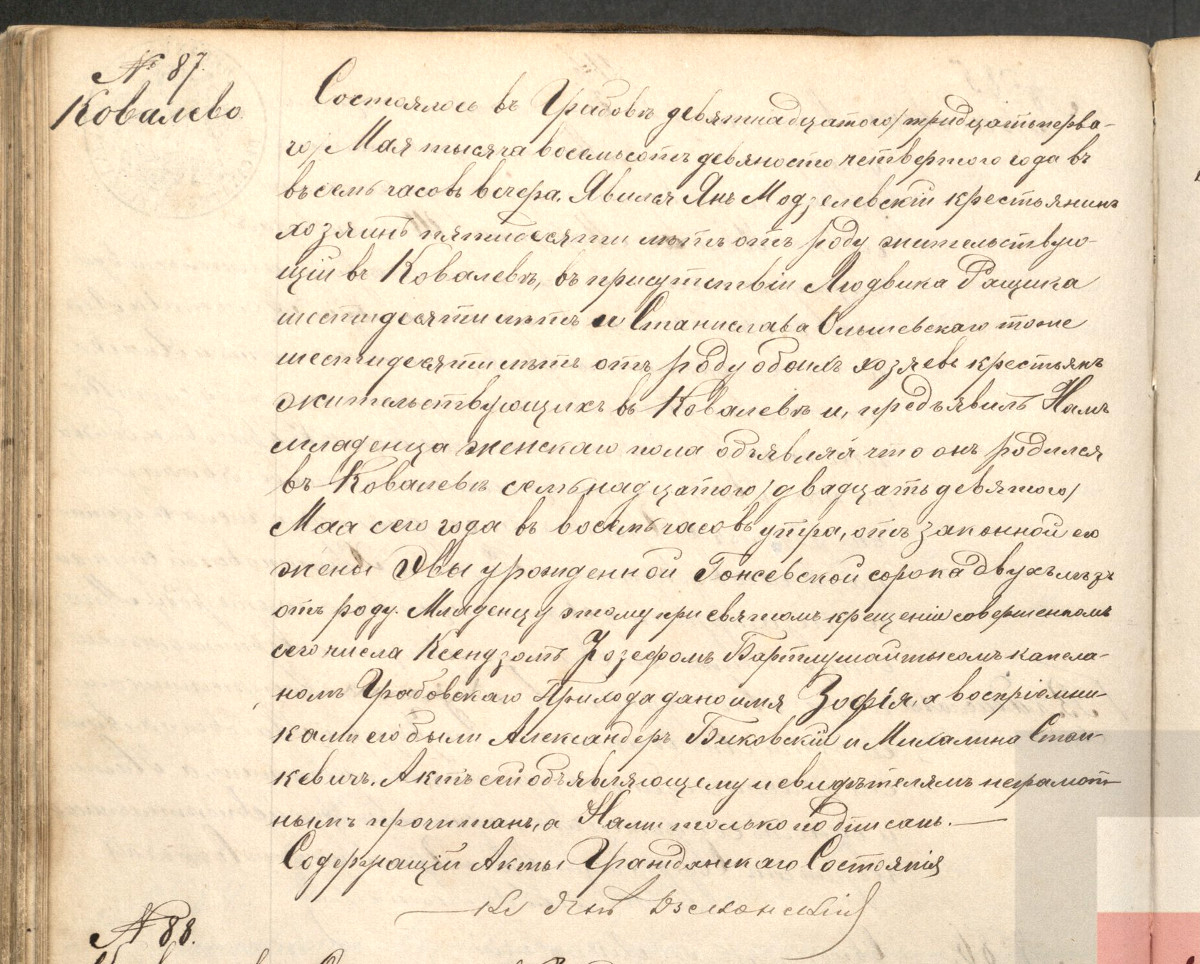 № 87.
Ковалево
Состоялось въ Грабовѣ девятнадцатого /тридцатьперва-
го/ Мая тысяча восемьсотъ девяносто четвертого года въ
въ семь часовъ вечера. Явился Янъ Модзелевскій крестьянинъ
хозяинъ пятидесяти лѣтъ отъ роду жительствую-
щій въ Ковалевѣ, въ присутствіи Людвика Ращика
шестидесяти лѣтъ и Станислава Ольшевскаго тоже
шестидесяти лѣтъ отъ роду обоихъ хозяевъ крестьянъ
жительствующихъ въ Ковалевѣ и, предъявилъ Намъ
младенца женскаго пола объявляя что онъ родился
въ Ковалевѣ семьнадцатого /двадцать девятого/
Мая сего года въ восемь часовъ утра, отъ законной его
жены Эвы урожденной Гонсевской сорока двухъ лѣтъ
отъ роду. Младенцу этому при святомъ крещеніи совершенномъ
сего числа Ксендзомъ Іозефомъ капела-
номъ Грабовскаго Прихода дано имя Зофія, а воспріемни-
ками его были Александеръ Быковскій и Михалина Стан-
кевичъ. Актъ сей объявляющему и свидѣтелямъ неграмот-
нымъ прочитанъ, а Нами только подписанъ.—
Содержащій Акты Гражданскаго Состоянія
Кс Янъ
№ 88.